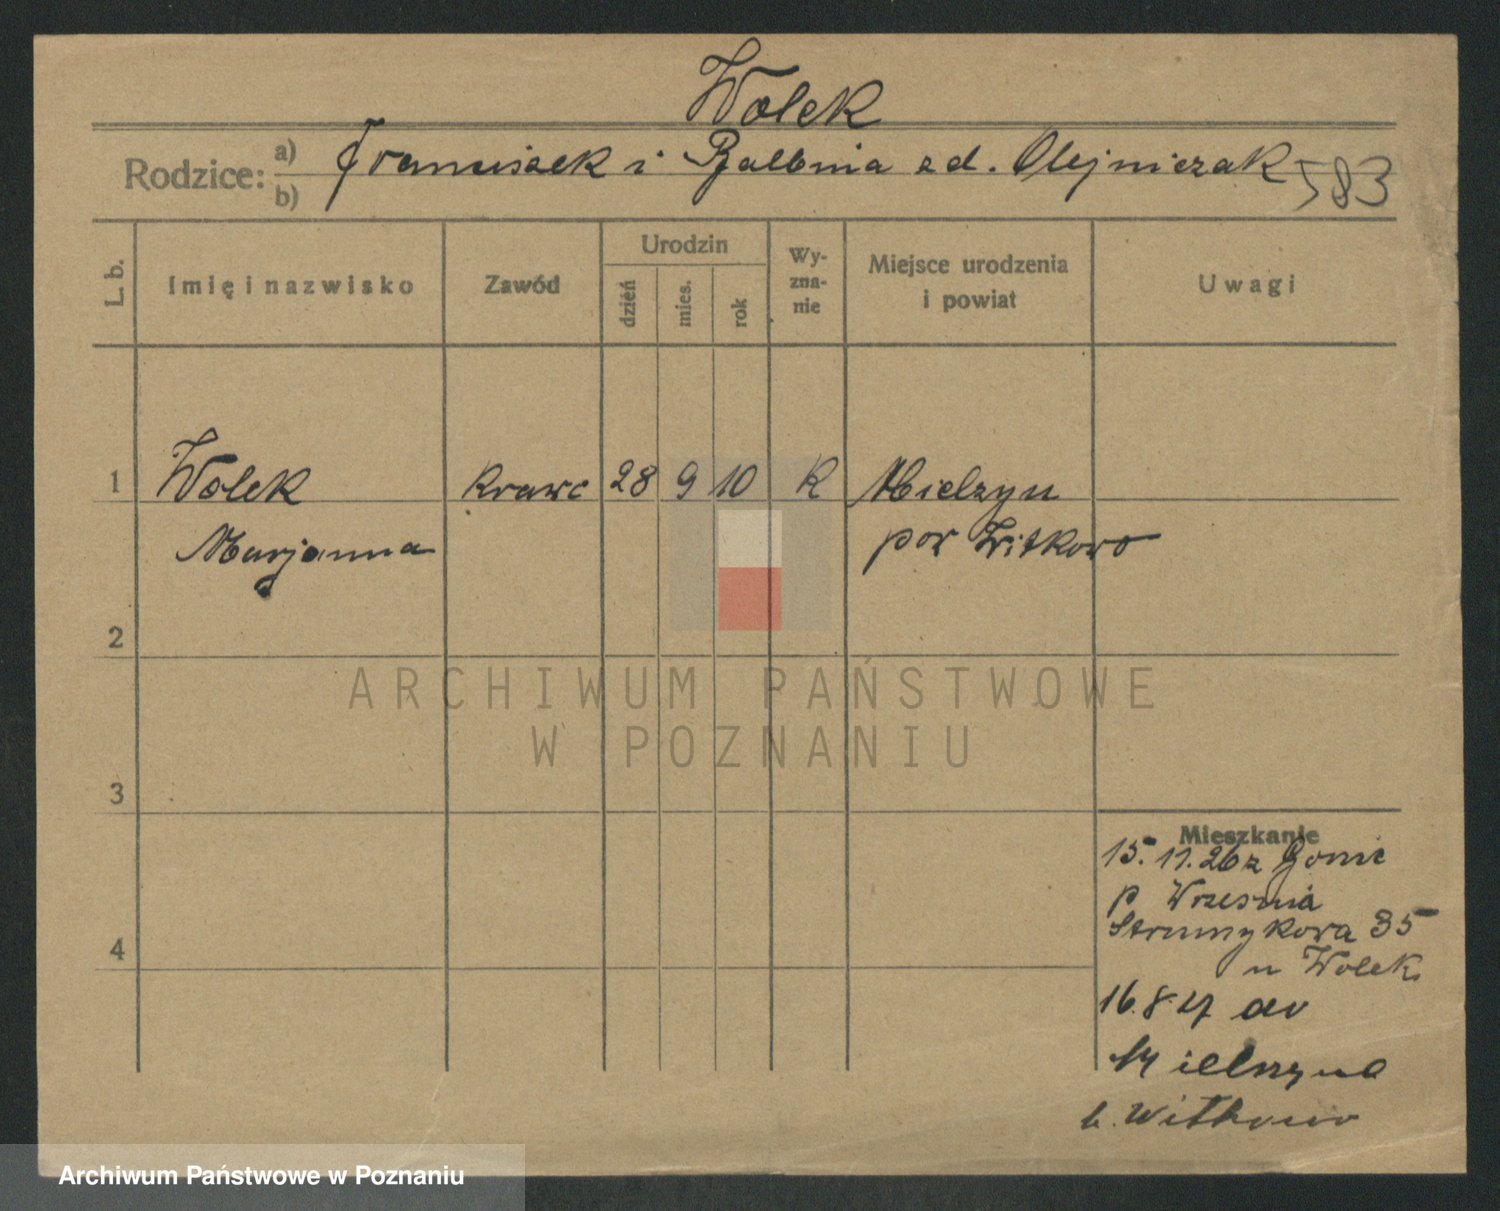 Wolek
Rodzice: a) b) Franciszek i Balbina zd. Olejniczak 583
L. b. Imię i nazwisko Zawód Urodzin dzień mies. rok Wy-zna-nie Miejsce urodzenia i powiat Uwagi
1 Wolek krawc 28 9 10 K Mielżyn
Marjanna pow Witkowo
2
ARCHIWUM PAŃSTWOWE
W POZNANIU
3
4
Mieszkanie
15.11.26 z Gonic
p Wrzesnia
Strumykowa 35
u Wolek
16.8.27 do
Mielżyna
b. Witkowo
Archiwum Państwowe w Poznaniu